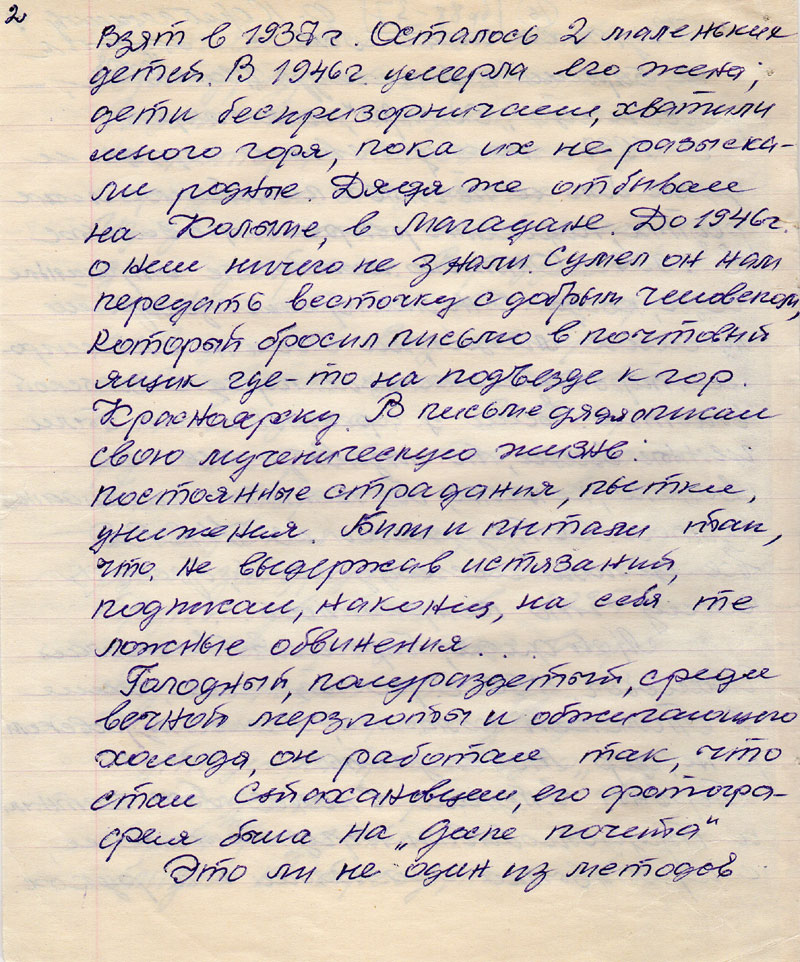 2
Взят в 1937 г. Осталось 2 маленьких
детей. В 1946 г. умерла его жена,
дети беспризорничали, хватили
много горя, пока их не разыска-
ли родные. Дядя же отбывал
на Колыме, в Магадане. До 1946 г.
о нем ничего не знали. Сумел он нам
передать весточку с добрым человеком,
который бросил письмо в почтовый
ящик где-то на подъезде к гор.
Красноярску. В письме дядя описал
свою мученическую жизнь:
постоянные страдания, пытки,
унижения. Били и пытали так,
что, не выдержав истязаний,
подписал, наконец, на себя те
ложные обвинения...
Голодный, полураздетый, среди
вечной мерзлоты и обжигающего
холода, он работал так, что
стал Стахановцем, его фотогра-
фия была на „Доске почета“
Это ли не один из методов